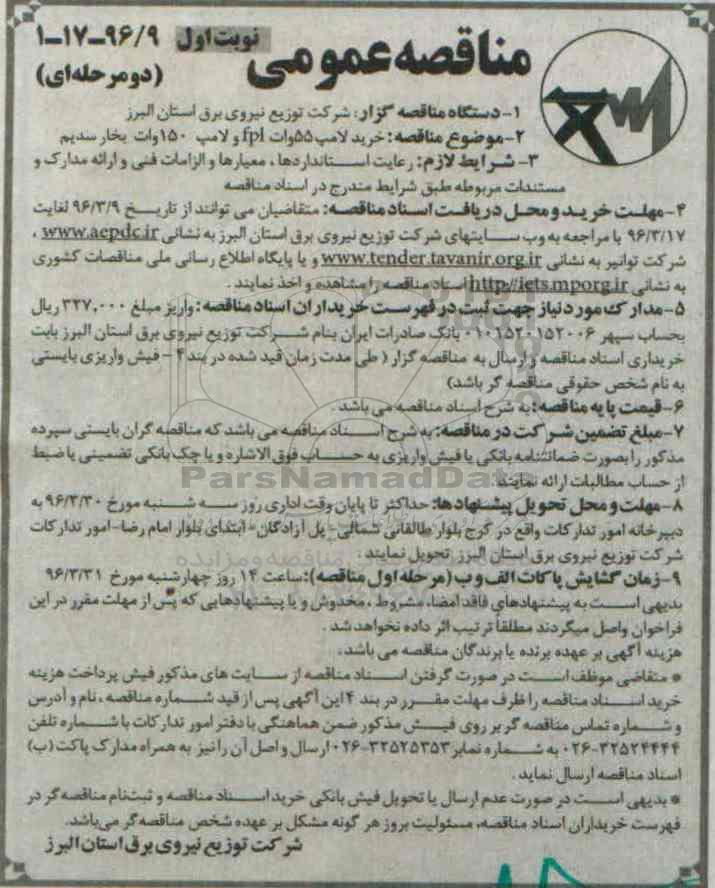 مناقصه عمومی
نوبت اول
۱-۱۷-۹۶/۹
(دو مرحله‌ای)
۱- دستگاه مناقصه گزار: شرکت توزیع نیروی برق استان البرز
۲- موضوع مناقصه: خرید لامپ ۵۵وات fpl و لامپ ۱۵۰وات بخار سدیم
۳- شرایط لازم: رعایت استانداردها، معیارها و الزامات فنی و ارائه مدارک و
مستندات مربوطه طبق شرایط مندرج در اسناد مناقصه
۴- مهلت خرید و محل دریافت اسناد مناقصه: متقاضیان می توانند از تاریخ ۹۶/۳/۹ لغایت
۹۶/۳/۱۷ با مراجعه به وب سایتهای شرکت توزیع نیروی برق استان البرز به نشانی www.aepdc.ir ،
شرکت توانیر به نشانی www.tender.tavanir.org.ir و یا پایگاه اطلاع رسانی ملی مناقصات کشوری
به نشانی http://iets.mporg.ir اسناد مناقصه را مشاهده و اخذ نمایند .
۵- مدارک مورد نیاز جهت ثبت در فهرست خریداران اسناد مناقصه: واریز مبلغ ۳۲۷,۰۰۰ ریال
بحساب سپهر ۰۱۰۱۵۲۰۱۵۲۰۰۶ بانک صادرات ایران بنام شرکت توزیع نیروی برق استان البرز بابت
خریداری اسناد مناقصه و ارسال به مناقصه گزار ( طی مدت زمان قید شده در بند ۴ - فیش واریزی بایستی
به نام شخص حقوقی مناقصه گر باشد)
۶- قیمت پایه مناقصه: به شرح اسناد مناقصه می باشد .
۷- مبلغ تضمین شرکت در مناقصه: به شرح اسناد مناقصه می باشد که مناقصه گران بایستی سپرده
مذکور را بصورت ضمانتنامه بانکی یا فیش واریزی به حساب فوق الاشاره و یا چک بانکی تضمینی یا ضبط
از حساب مطالبات ارائه نمایند.
ParsNamadData
۸- مهلت و محل تحویل پیشنهادها: حداکثر تا پایان وقت اداری روز سه شنبه مورخ ۹۶/۳/۳۰ به
دبیرخانه امور تدارکات واقع در کرج بلوار طالقانی شمالی - پل آزادگان - ابتدای بلوار امام رضا - امور تدارکات
شرکت توزیع نیروی برق استان البرز تحویل نمایند .
۹- زمان گشایش پاکات الف و ب (مرحله اول مناقصه): ساعت ۱۴ روز چهارشنبه مورخ ۹۶/۳/۳۱
بدیهی است به پیشنهادهای فاقد امضا، مشروط ، مخدوش و یا پیشنهادهایی که پس از مهلت مقرر در این
فراخوان واصل میگردند مطلقاً ترتیب اثر داده نخواهد شد .
هزینه آگهی بر عهده برنده یا برندگان مناقصه می باشد .
* متقاضی موظف است در صورت گرفتن اسناد مناقصه از سایت های مذکور فیش پرداخت هزینه
خرید اسناد مناقصه را ظرف مهلت مقرر در بند ۴ این آگهی پس از قید شماره مناقصه ، نام و آدرس
و شماره تماس مناقصه گر بر روی فیش مذکور ضمن هماهنگی با دفتر امور تدارکات با شماره تلفن
۰۲۶-۳۲۵۲۴۴۴۴ به شماره نمابر ۰۲۶-۳۲۵۲۵۳۵۳ ارسال و اصل آن را نیز به همراه مدارک پاکت (ب)
اسناد مناقصه ارسال نماید .
* بدیهی است در صورت عدم ارسال یا تحویل فیش بانکی خرید اسناد مناقصه و ثبت‌نام مناقصه گر در
فهرست خریداران اسناد مناقصه، مسئولیت بروز هر گونه مشکل بر عهده شخص مناقصه گر می‌باشد.
شرکت توزیع نیروی برق استان البرز